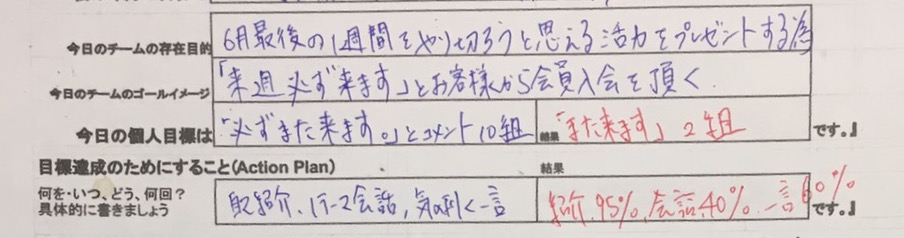 今日のチームの存在目的 6月最後の1週間をやり切ろうと思える活力をプレゼントする為
今日のチームのゴールイメージ 「来週必ず来ます」とお客様から会員入会を頂く
今日の個人目標は 「必ずまた来ます。」とコメント10組 結果 「また来ます」2組 です。』
目標達成のためにすること(Action Plan) 結果
何を・いつ、どう、何回? 紹介、1テーマ会話、気の利く一言 紹介、95%、会話、40%、一言60%
具体的に書きましょう です。』